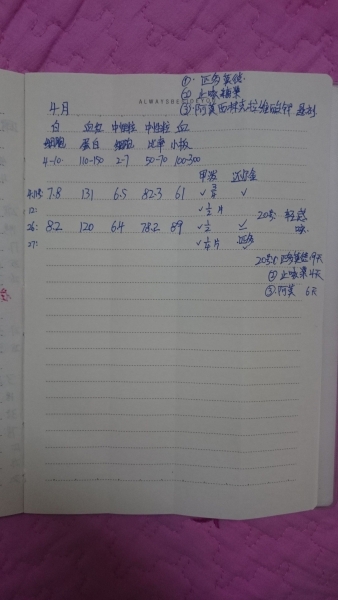 ① 匹多莫德
② 止咳糖浆
③ 阿莫西林克拉维酸钾
ALWAYS
4月
白 血红 中性粒 中性粒 血
细胞 蛋白 细胞 比率 小板
4-10 110-150 2-7 50-70 100-300
7.8 131 6.5 82.3 61 ✓ ✓
12: ✓ 1/2 片
26: 8.2 120 6.4 78.2 69 ✓ 1/2 ✓
20号: 轻感
27: ✓ 1/4 片
20号 ① 匹多莫德 9天
② 止咳 4天
③ 阿莫 6天